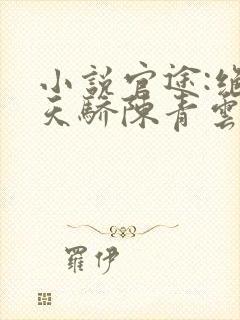 小説官途:絕
天驕陳青雲
羅伊